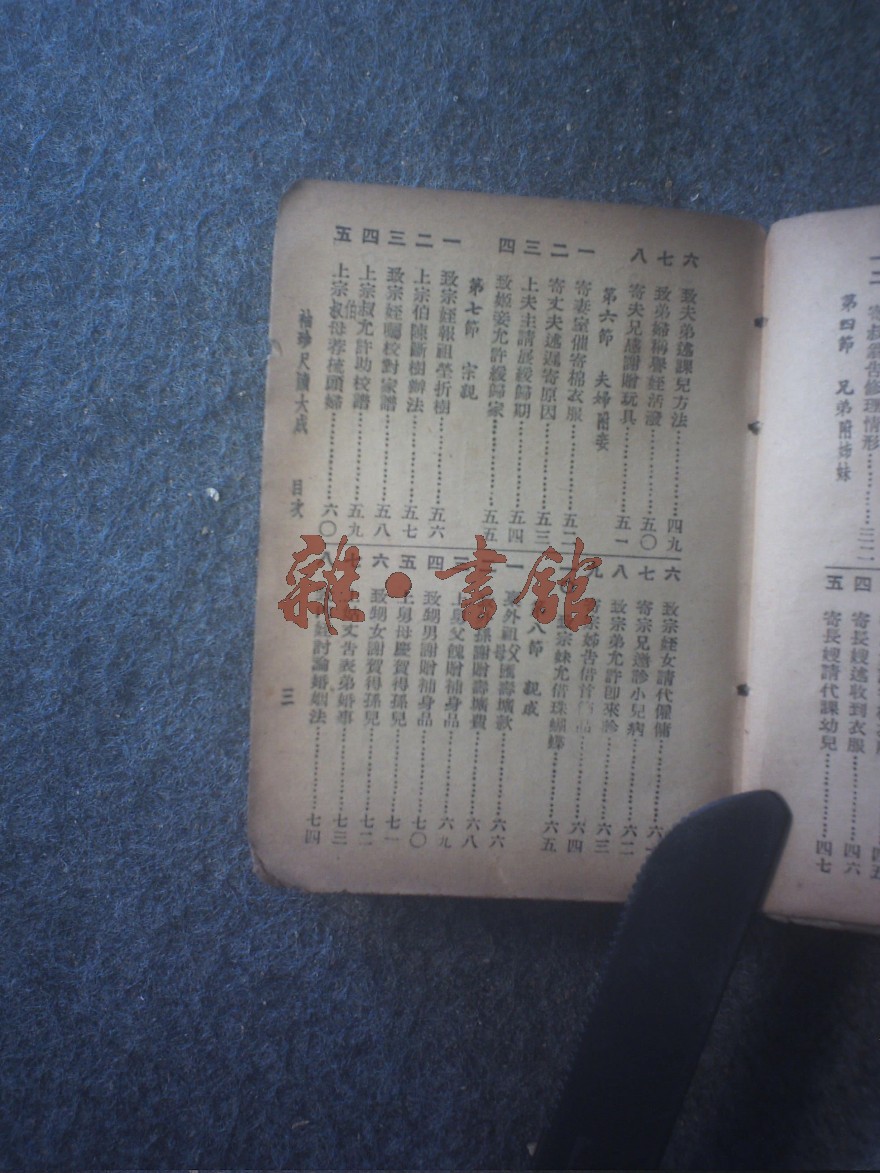 第四節 兄弟附姊妹
四 寄長嫂述收到衣服……四六
五 寄長嫂請代課幼兒……四七
六 致夫弟述課兒方法……四九
七 致弟婦稱譽姪活潑……五〇
八 寄夫兄感謝贈玩具……五一
第六節 夫婦附妾
一 寄妻室催寄棉衣服……五二
二 寄丈夫述遲寄原因……五三
三 上夫主請展緩歸期……五四
四 致姬妾允許緩歸家……五五
第七節 宗親
一 致宗姪報祖塋折樹……五六
二 上宗伯陳斷樹辦法……五七
三 致宗姪囑校對家譜……五八
四 上宗叔伯允許助校譜……五九
五 上宗叔母荐梳頭婦……六〇
六 致宗姪女請代僱傭……六
七 寄宗兄邀診小兒病……六二
八 致宗弟允許即來診……六三
九 宗姊告借首品……六四
宗妹允借珠蝴蝶……六五
八節 親戚
一 外祖父母匯壽壙款……六六
孫謝贈壽壙費……六八
三 上舅父餽贈補身品……六九
四 致甥男謝贈補身品……七〇
五 上舅母慶賀得孫兒……七一
六 致甥女謝賀得孫兒……七二
七 丈告表弟婚事……七三
八 姪討論婚姻法……七四
袖珍尺牘大成 目次
三
雜·書館